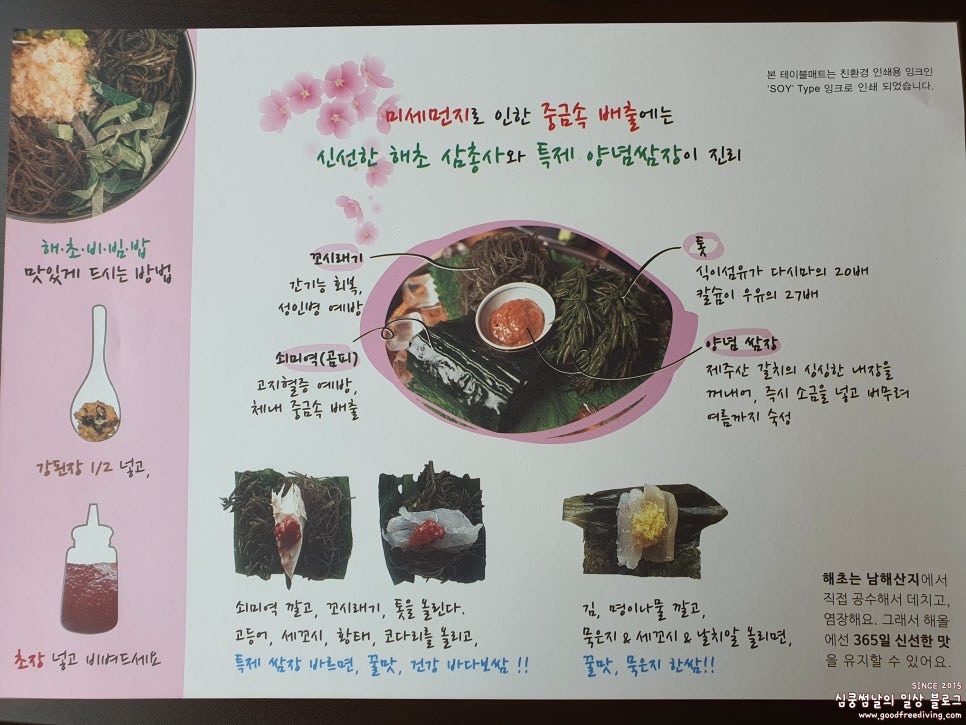 본 테이블매트는 친환경 인쇄용 잉크인
'SOY' Type 잉크로 인쇄 되었습니다.
미세먼지로 인한 중금속 배출에는
신선한 해초 삼총사와 특제 양념쌈장이 진리
해·초·비·빔·밥
맛있게 드시는 방법
강된장 1/2 넣고,
초장 넣고 비벼드세요
꼬시래기
간기능 회복,
성인병 예방
쇠미역(곰피)
고지혈증 예방,
체내 중금속 배출
톳
식이섬유가 다시마의 20배
칼슘이 우유의 27배
양념 쌈장
제주산 갈치의 싱싱한 내장을
꺼내어, 즉시 소금을 넣고 버무려
여름까지 숙성
쇠미역 깔고, 꼬시래기, 톳을 올린다.
고등어, 세꼬시, 황태, 코다리를 올리고,
특제 쌈장 바르면, 꿀맛, 건강 바다보쌈 !!
김, 명이나물 깔고,
묵은지 & 세꼬시 & 날치알 올리면,
꿀맛, 묵은지 한쌈!!
해초는 남해산지에서
직접 공수해서 데치고,
염장해요. 그래서 해올
에선 365일 신선한 맛
을 유지할 수 있어요.
SINCE 2015
심쿵썸날의 일상 블로그
www.goodfreediving.com